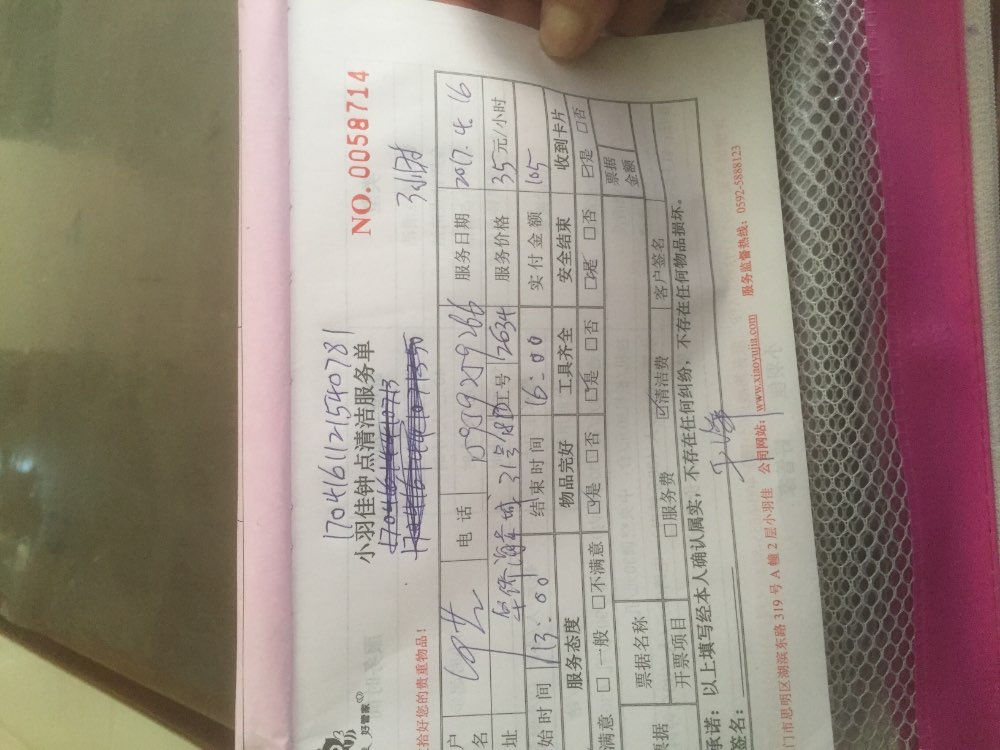 NO. 0058714
170416112154078 1
小羽佳钟点清洁服务单
3小时
好管家
拾好您的贵重物品!
户名 电话 服务日期 2017.4.16
址 工号 12634 服务价格 35元/小时
始时间 13:00 结束时间 16:00 实付金额 105
服务态度 物品完好 工具齐全 安全结束 收到卡片
满意 □一般 □不满意 ☑是 □否 ☑是 □否 ☑是 □否 ☑是 □否
票据 票据名称 票据金额
开票项目 □服务费 ☑清洁费 客户签名
承诺:以上填写经本人确认属实,不存在任何纠纷,不存在任何物品损坏。
签名:
门市思明区湖滨东路 319 号 A 幢 2 层小羽佳 公司网站:www.xiaoyujia.com 服务监督热线:0592-5888123